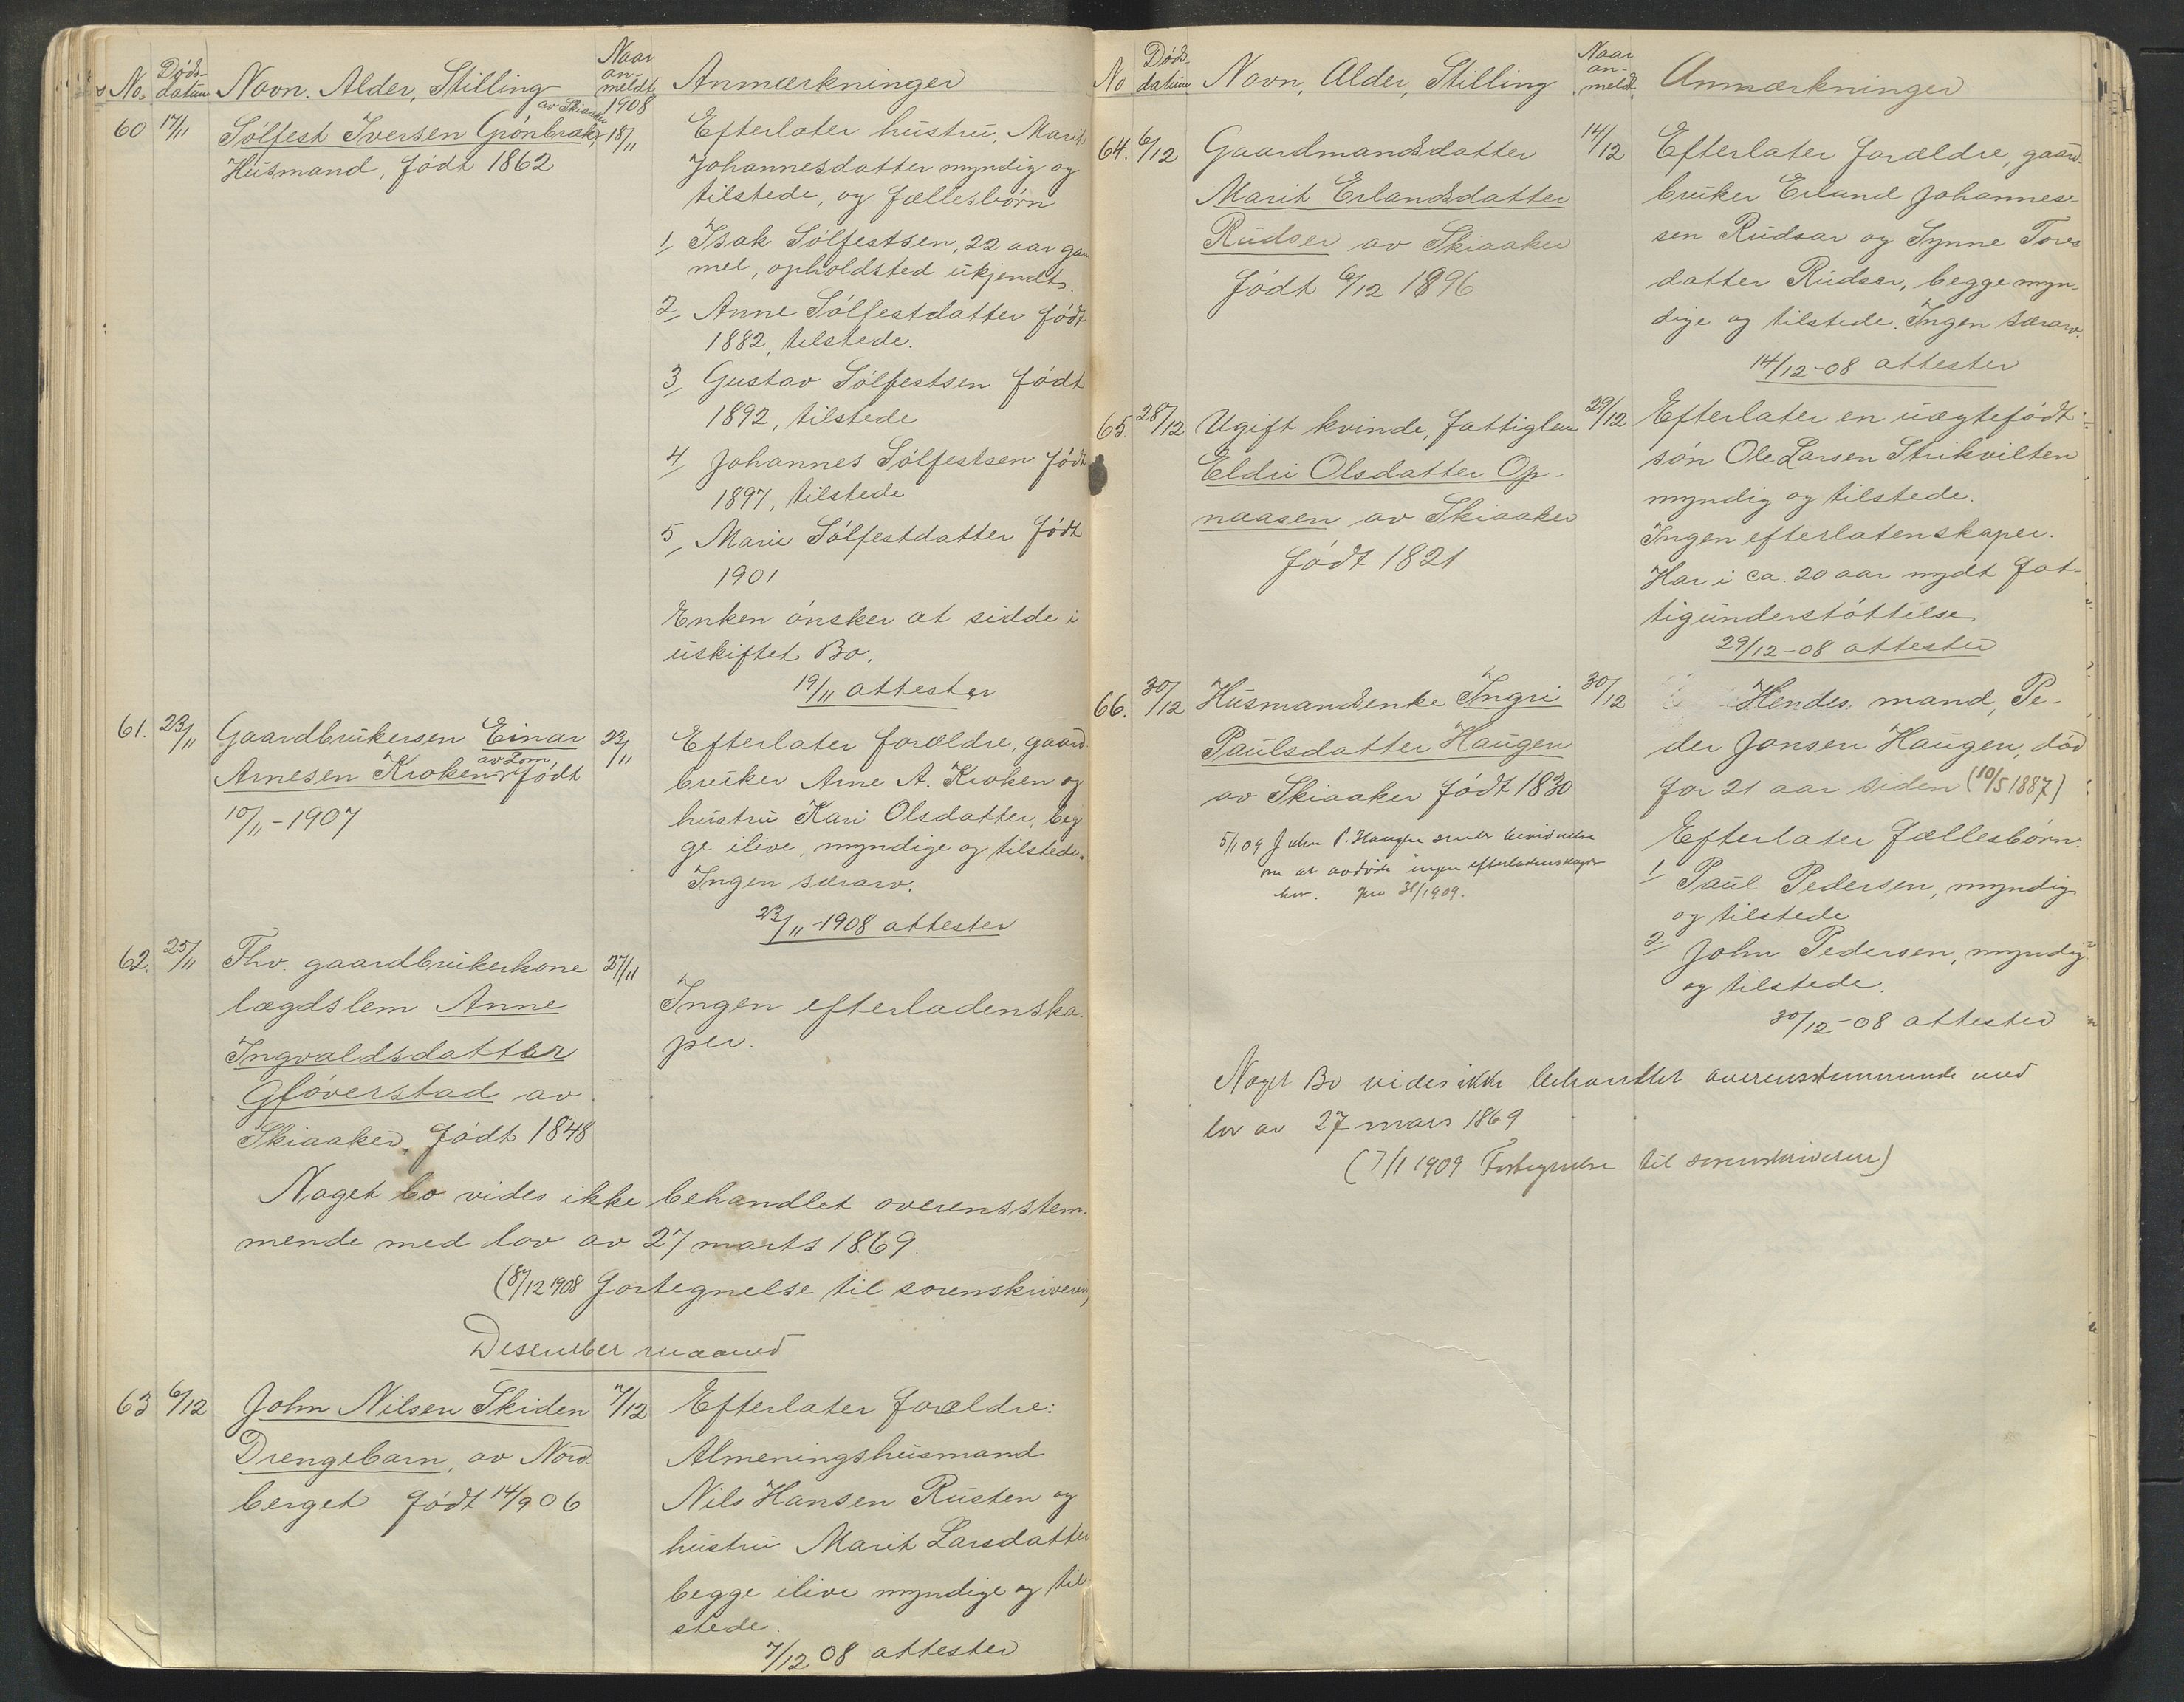 No. Døds-datum Navn. Alder, Stilling Naar an-meldt 1908 Anmærkninger
60 17/11 Sólfest Iversen Grónbrak, av Skiaaker 18/11
Húsmand, fódt 1862
Efterlater hústrú, Marit
Johannesdatter myndig og
tilstede, og fællesbórn
1 Isak Sólfestsen, 22 aar gam
mel, opholdsted úkjendt.
2 Anne Sólfestdatter fódt
1882, tilstede.
3 Gustav Sólfestsen fódt
1892, tilstede
4 Johannes Sólfestsen fódt
1897, tilstede
5 Marie Sólfestdatter fódt
1901
Enken ónsker at sidde i
úskiftet Bo.
19/11 attester
61. 23/11 Gaardbrúkersen Einar 23/11
Arnesen Kroken av Lom, fódt
10/11-1907
Efterlater forældre, gaard
brúker Arne A. Kroken og
hústrú Kari Olsdatter, beg
ge ilive, myndige og tilstede.
Ingen særarv.
23/11-1908 attester
62. 25/11 Fhv. gaardbrúkerkone 27/11
lægdslem Anne
Ingvaldsdatter
Glóverstad av
Skiaaker, fódt 1848
Ingen efterladenska-
per.
Noget bo vides ikke behandlet overensstem-
mende med lov av 27 marts 1869.
(8/12 1908 Fortegnelse til sorenskriveren)
Desember maaned
63 6/12 John Nilsen Skiden 7/12
Drengebarn, av Nord-
berget fódt 14/9 06
Efterlater forældre:
Almeningshúsmand
Nils Hansen Rústen og
hústrú Marit Larsdatter
begge ilive myndige og til
stede.
7/12 08 attester
No Døds-datum Navn, Alder, Stilling Naar an-meldt. Anmærkninger
64. 6/12 Gaardmandsdatter 14/12
Marit Erlandsdatter
Rúdser av Skiaaker
fódt 6/12 1896
Efterlater forældre, gaard-
brúker Erland Johannes-
sen Rúdsar og Synne Tores
datter Rúdser, begge myn-
dige og tilstede. Ingen særarv.
14/12-08 attester
65. 28/12 Ugift kvinde, fattiglem 29/12
Eldri Olsdatter Op-
naasen av Skiaaker
fódt 1821
Efterlater en úægtefódt
són Ole Larsen Strikvilten
myndig og tilstede.
Ingen efterlatenskaper.
Har i ca. 20 aar nydt fat-
tigúnderstóttelse
29/12-08 attester
66. 30/12 Húsmandsenke Ingri 30/12
Paulsdatter Haúgen
av Skiaaker fódt 1830
5/1 09 John P. Haugen
om at avdøde ingen efterladenskaper
har.
Hendes mand, Pe-
der Jonsen Haúgen, død
for 21 aar siden (10/5 1887)
Efterlater fællesbórn:
1 Paúl Pedersen, myndig
og tilstede
2 John Pedersen, myndig
og tilstede.
30/12-08 attester
Noget Bo vides ikke behandlet overensstemmende med
lov av 27 mars 1869
(7/1 1909 Fortegnelse til sorenskriveren)